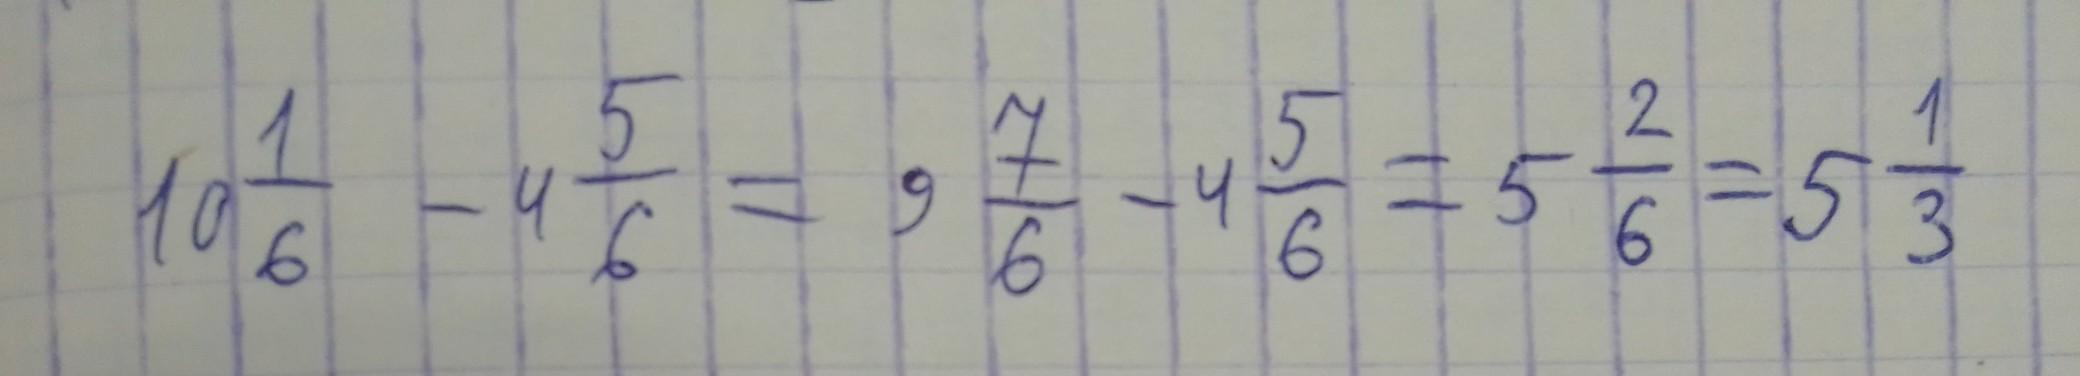 10 1/6 - 4 5/6 = 9 7/6 - 4 5/6 = 5 2/6 = 5 1/3